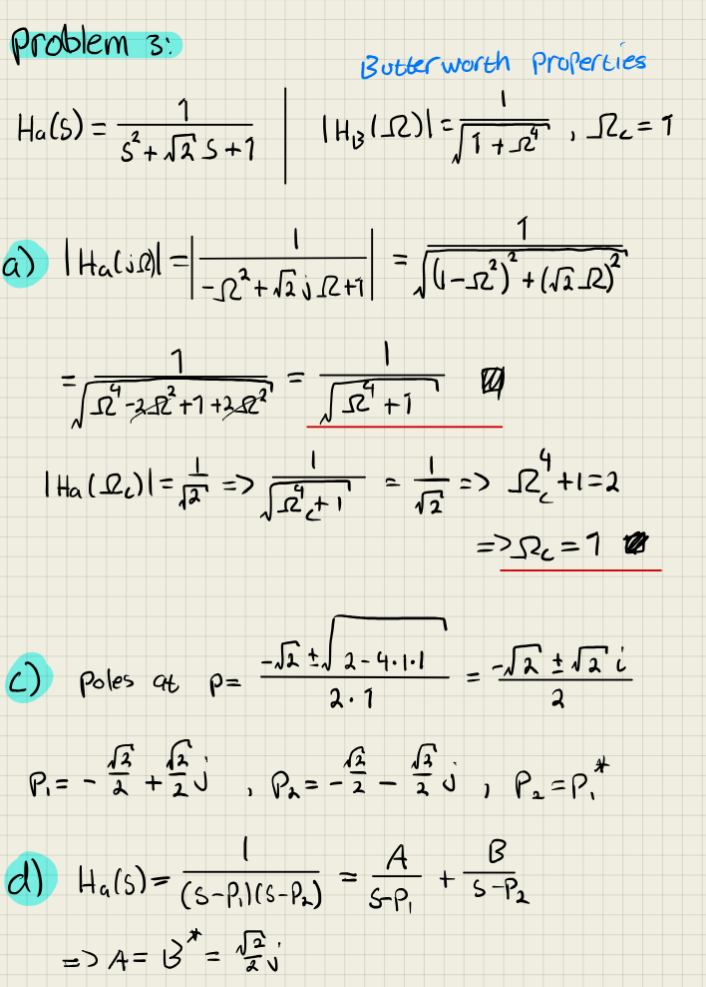 Problem 3:
Butterworth Properties
Ha(s) = 1/(s² + √2 s + 1) | |H_B(Ω)| = 1/√(1 + Ω⁴), Ω_c = 1
a) |Ha(jΩ)| = |1/(-Ω² + √2 j Ω + 1)| = 1/√((1-Ω²)² + (√2 Ω)²)
= 1/√(Ω⁴ - 2Ω² + 1 + 2Ω²) = 1/√(Ω⁴ + 1)
|Ha(Ω_c)| = 1/√2 => 1/√(Ω_c⁴ + 1) = 1/√2 => Ω_c⁴ + 1 = 2
=> Ω_c = 1
c) Poles at p = (-√2 ± √(2 - 4·1·1))/(2·1) = (-√2 ± √2 i)/2
P₁ = -√2/2 + √2/2 j, P₂ = -√2/2 - √2/2 j, P₂ = P₁*
d) Ha(s) = 1/((s-P₁)(s-P₂)) = A/(s-P₁) + B/(s-P₂)
=> A = B* = √2/2 j